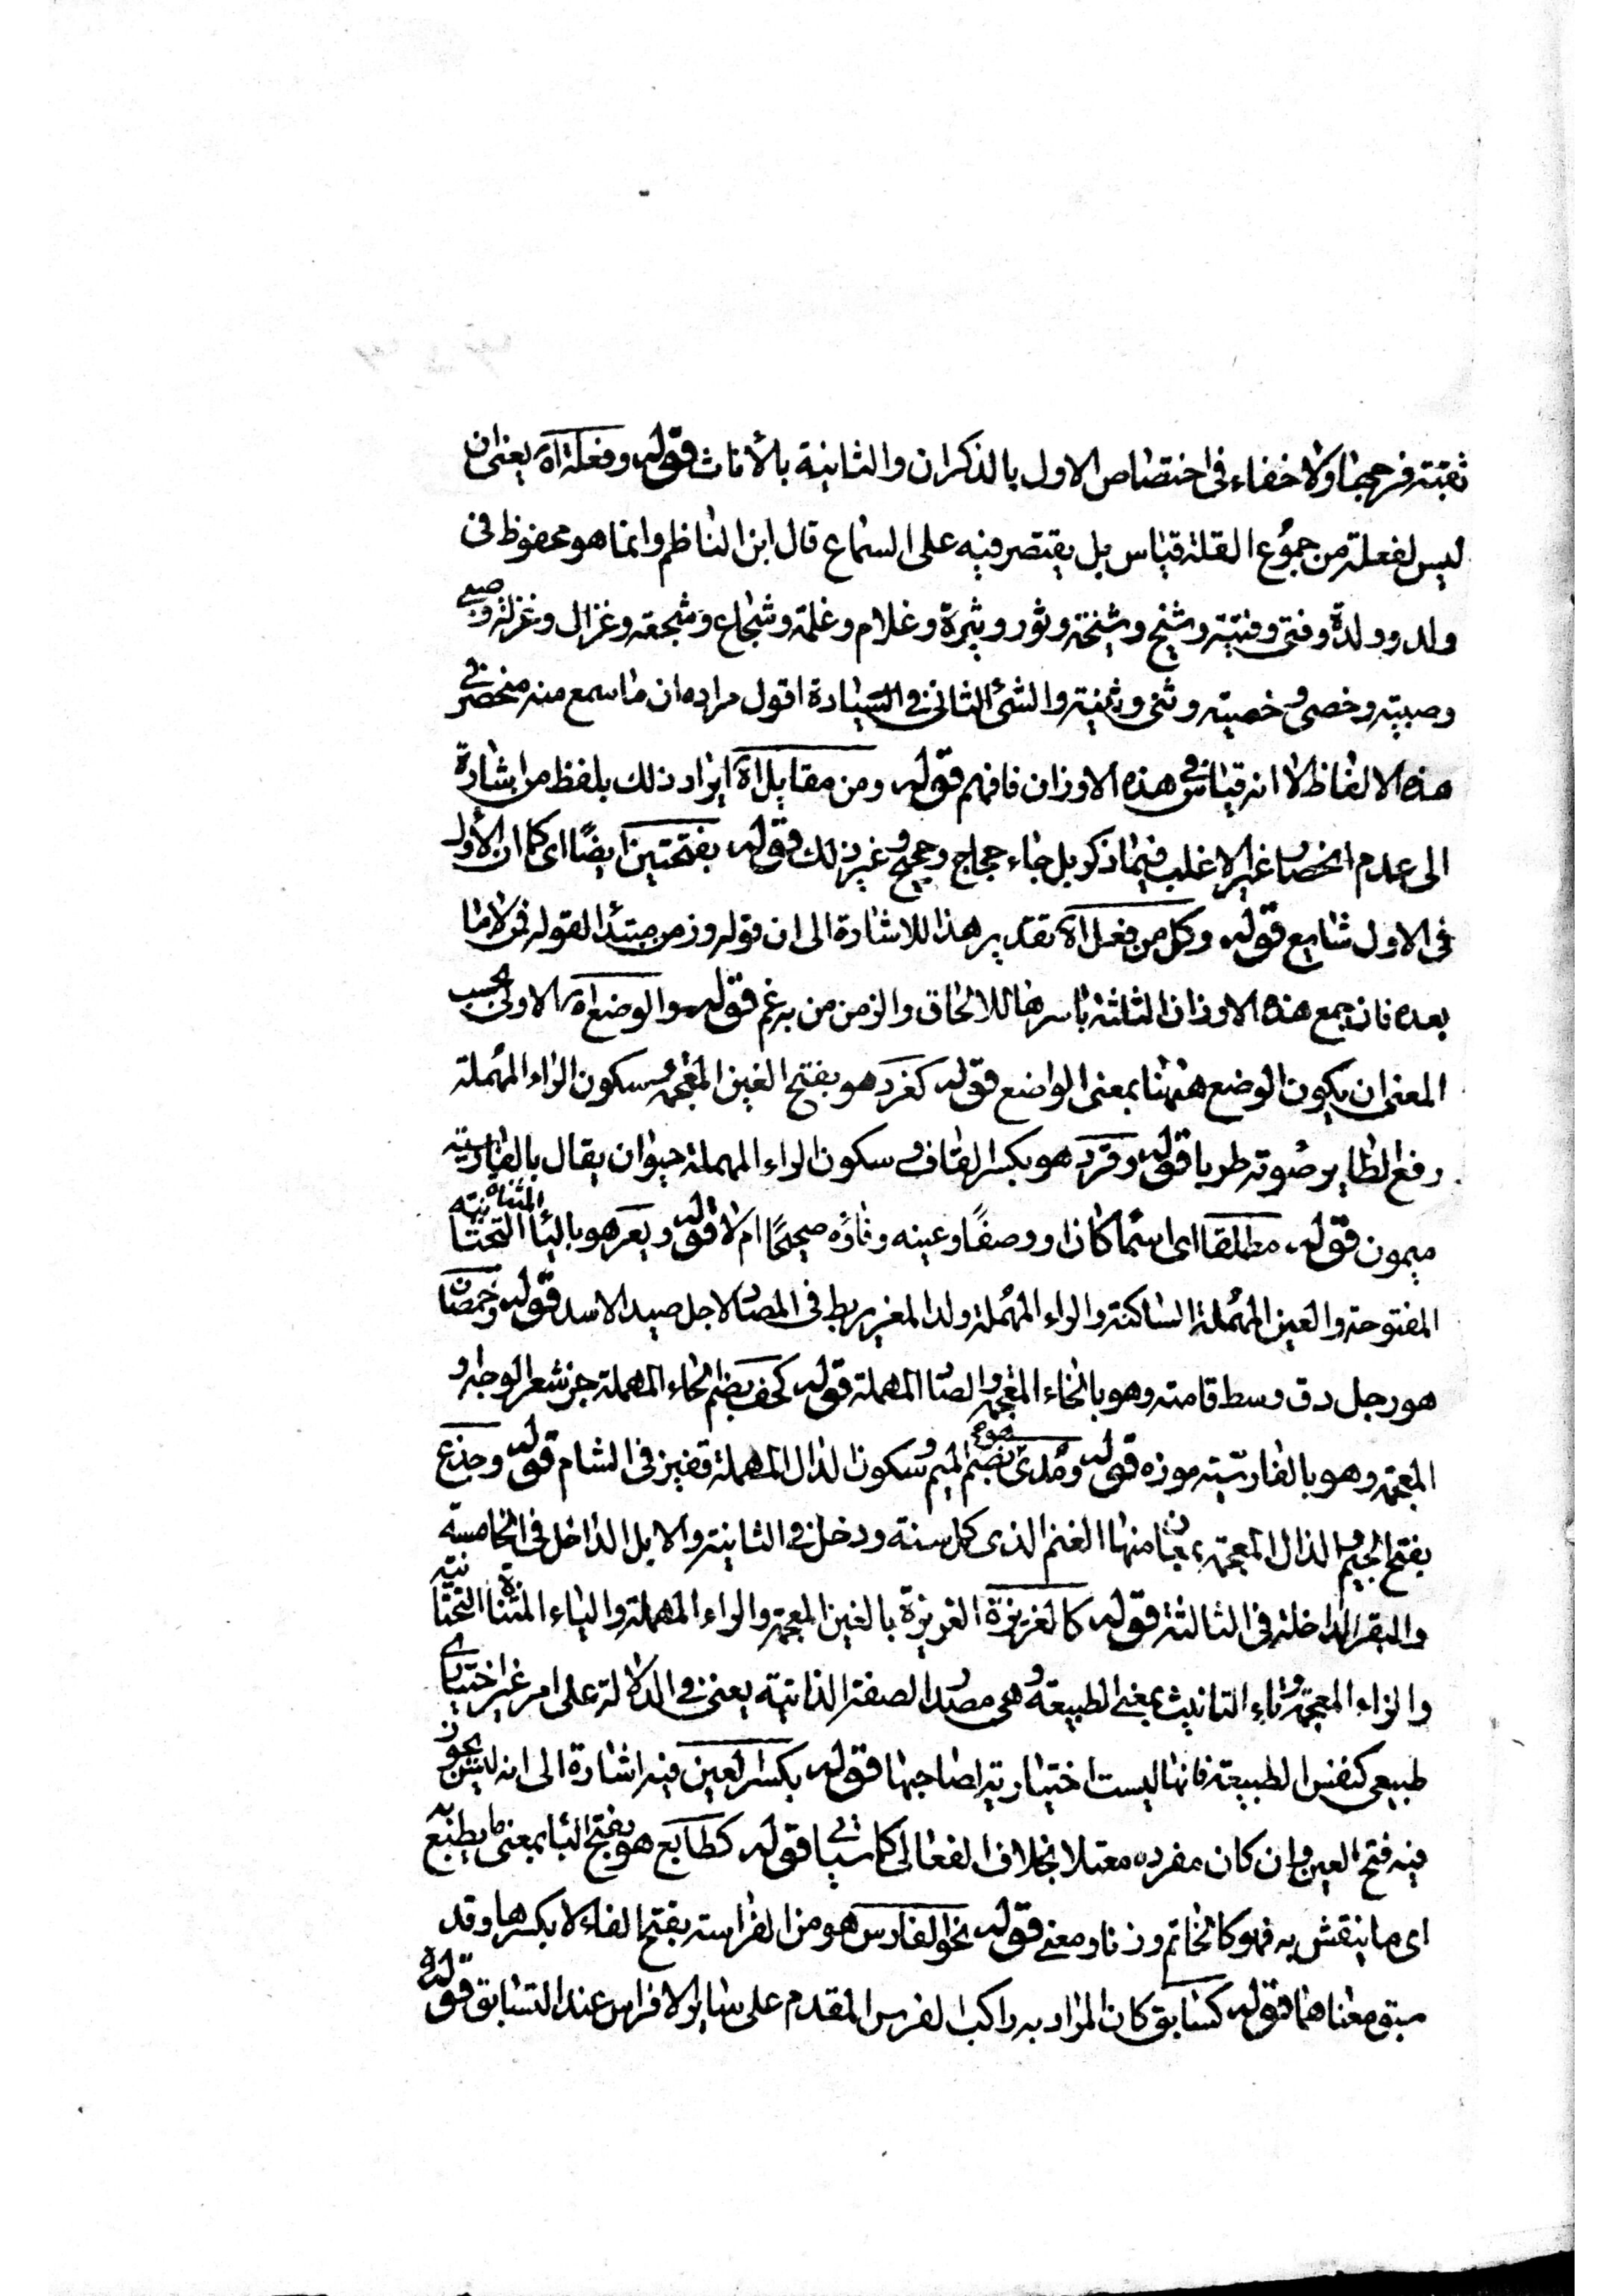 ثقبته فرججها ولا خفاء فى اختصاص الاول بالذكران والثانية بالأناث قوله وفعلة اه يعنى ان
ليس لفعلة من جموع القلة قياس بل يقتصر فيه على السماع قال ابن الناظم وانما هو محفوظ فى
ولد وولدة وفتى وفتية وشيخ وشيخة وثور وثيرة وغلام وغلمة وشجاع وشجعة وغزال وغزلة وصبى
وصبية وخصى وخصية وثنى وثنية والشئ الثانى فى السيادة اقول مراده ان ما سمع منه منحصر فى
هذه الالفاظ لا انه قياس فى هذه الاوزان فافهم قوله ومن مقابل اه ايراد ذلك بلفظ من اشارة
الى عدم انحصار غير الاغلب فيما ذكر بل جاء حجاج وحجج وغير ذلك قوله بفتحتين ايضًا اى كما ان الأول
فى الاول شايع قوله وكل من فعل اه تقدير هذا للاشارة الى ان قوله وزمن مبتدأ لقوله قمن لا ما
بعده فان جمع هذه الاوزان الثلثة باسرها للالحاق والزمن من به غم قوله والوضع اه الاولى بحسب
المعنى ان يكون الوضع ههنا بمعنى الواضع قوله كغرد هو بفتح الغين المعجمة وسكون الراء المهملة
رفع الطاير صوته طربا قوله وقرد هو بكسر القاف وسكون الراء المهملة حيوان يقال بالفارسية
ميمون قوله مطلقا اى اسما كان او وصفًا وعينه وفاؤه صحيحًا ام لا قوله ويعر هو بالياء المثناة التحتانية
المفتوحة والعين المهملة الساكنة والراء المهملة ولد المغر يربط فى المصاد لاجل صيد الاسد قوله وخمصان
هو رجل دق وسط قامته وهو بالخاء المعجمة والصاد المهملة قوله كخف بضم الخاء المهملة جز شعر الوجه و
المعجمة وهو بالفارسية موزه قوله ومدى بضم الميم وسكون الدال المهملة قفيز فى الشام قوله وجذع
بفتح الجيم والذال المعجمة بمعان منها الغنم الذى كمل سنة ودخل فى الثانية والابل الداخل فى الخامسة
والبقر الداخلة فى الثالثة قوله كالغريزة الغريزة بالغين المعجمة والراء المهملة والياء المثناة التحتانية
والزاء المعجمة وتاء التانيث بمعنى الطبيعة وهى مصدر الصفة الذاتية يعنى فى الدلالة على امر غير اختيارى
طبيعى كنفس الطبيعة فانها ليست اختيارية لصاحبها قوله بكسر العين فيه اشارة الى انه ليس يجوز
فيه فتح العين وان كان مفرده معتلا بخلاف الفعالى كما سياتى قوله كطابع هو بفتح الباء بمعنى ما يطبع به
اى ما ينقش به فهو كالخاتم وزنا ومعنى قوله نحو الفارس هو من الفراسة بفتح الفاء لا بكسرها وقد
سبق معناهما قوله كسابق كان المراد به راكب الفرس المقدم على ساير الافراس عند التسابق قوله